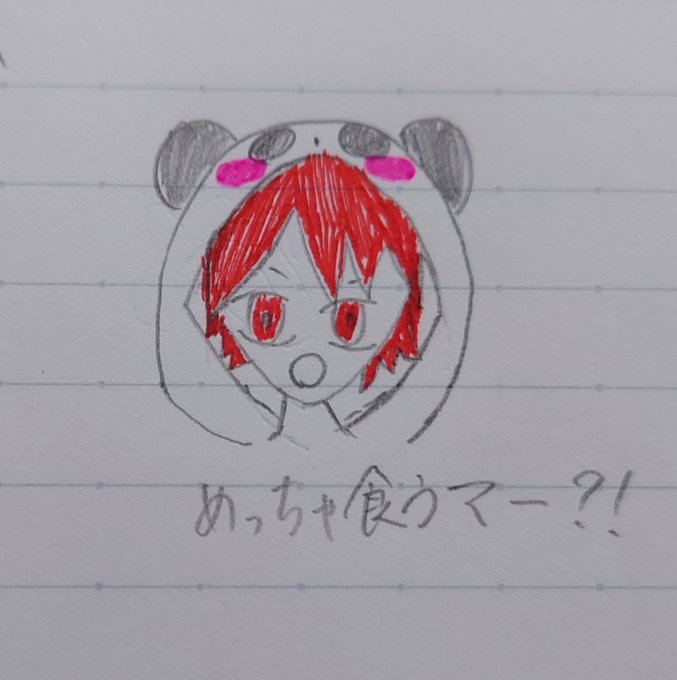 めっちゃ食うマー?!